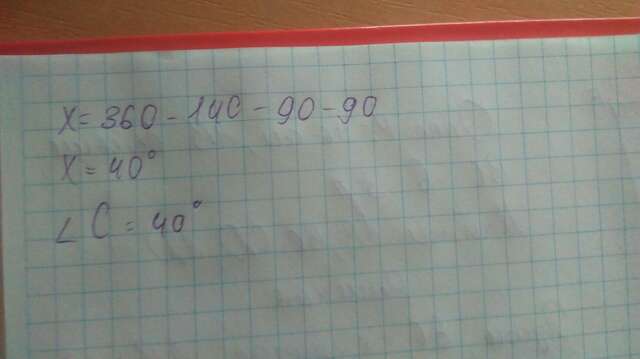 X = 360 - 140 - 90 - 90
X = 40°
∠ C = 40°